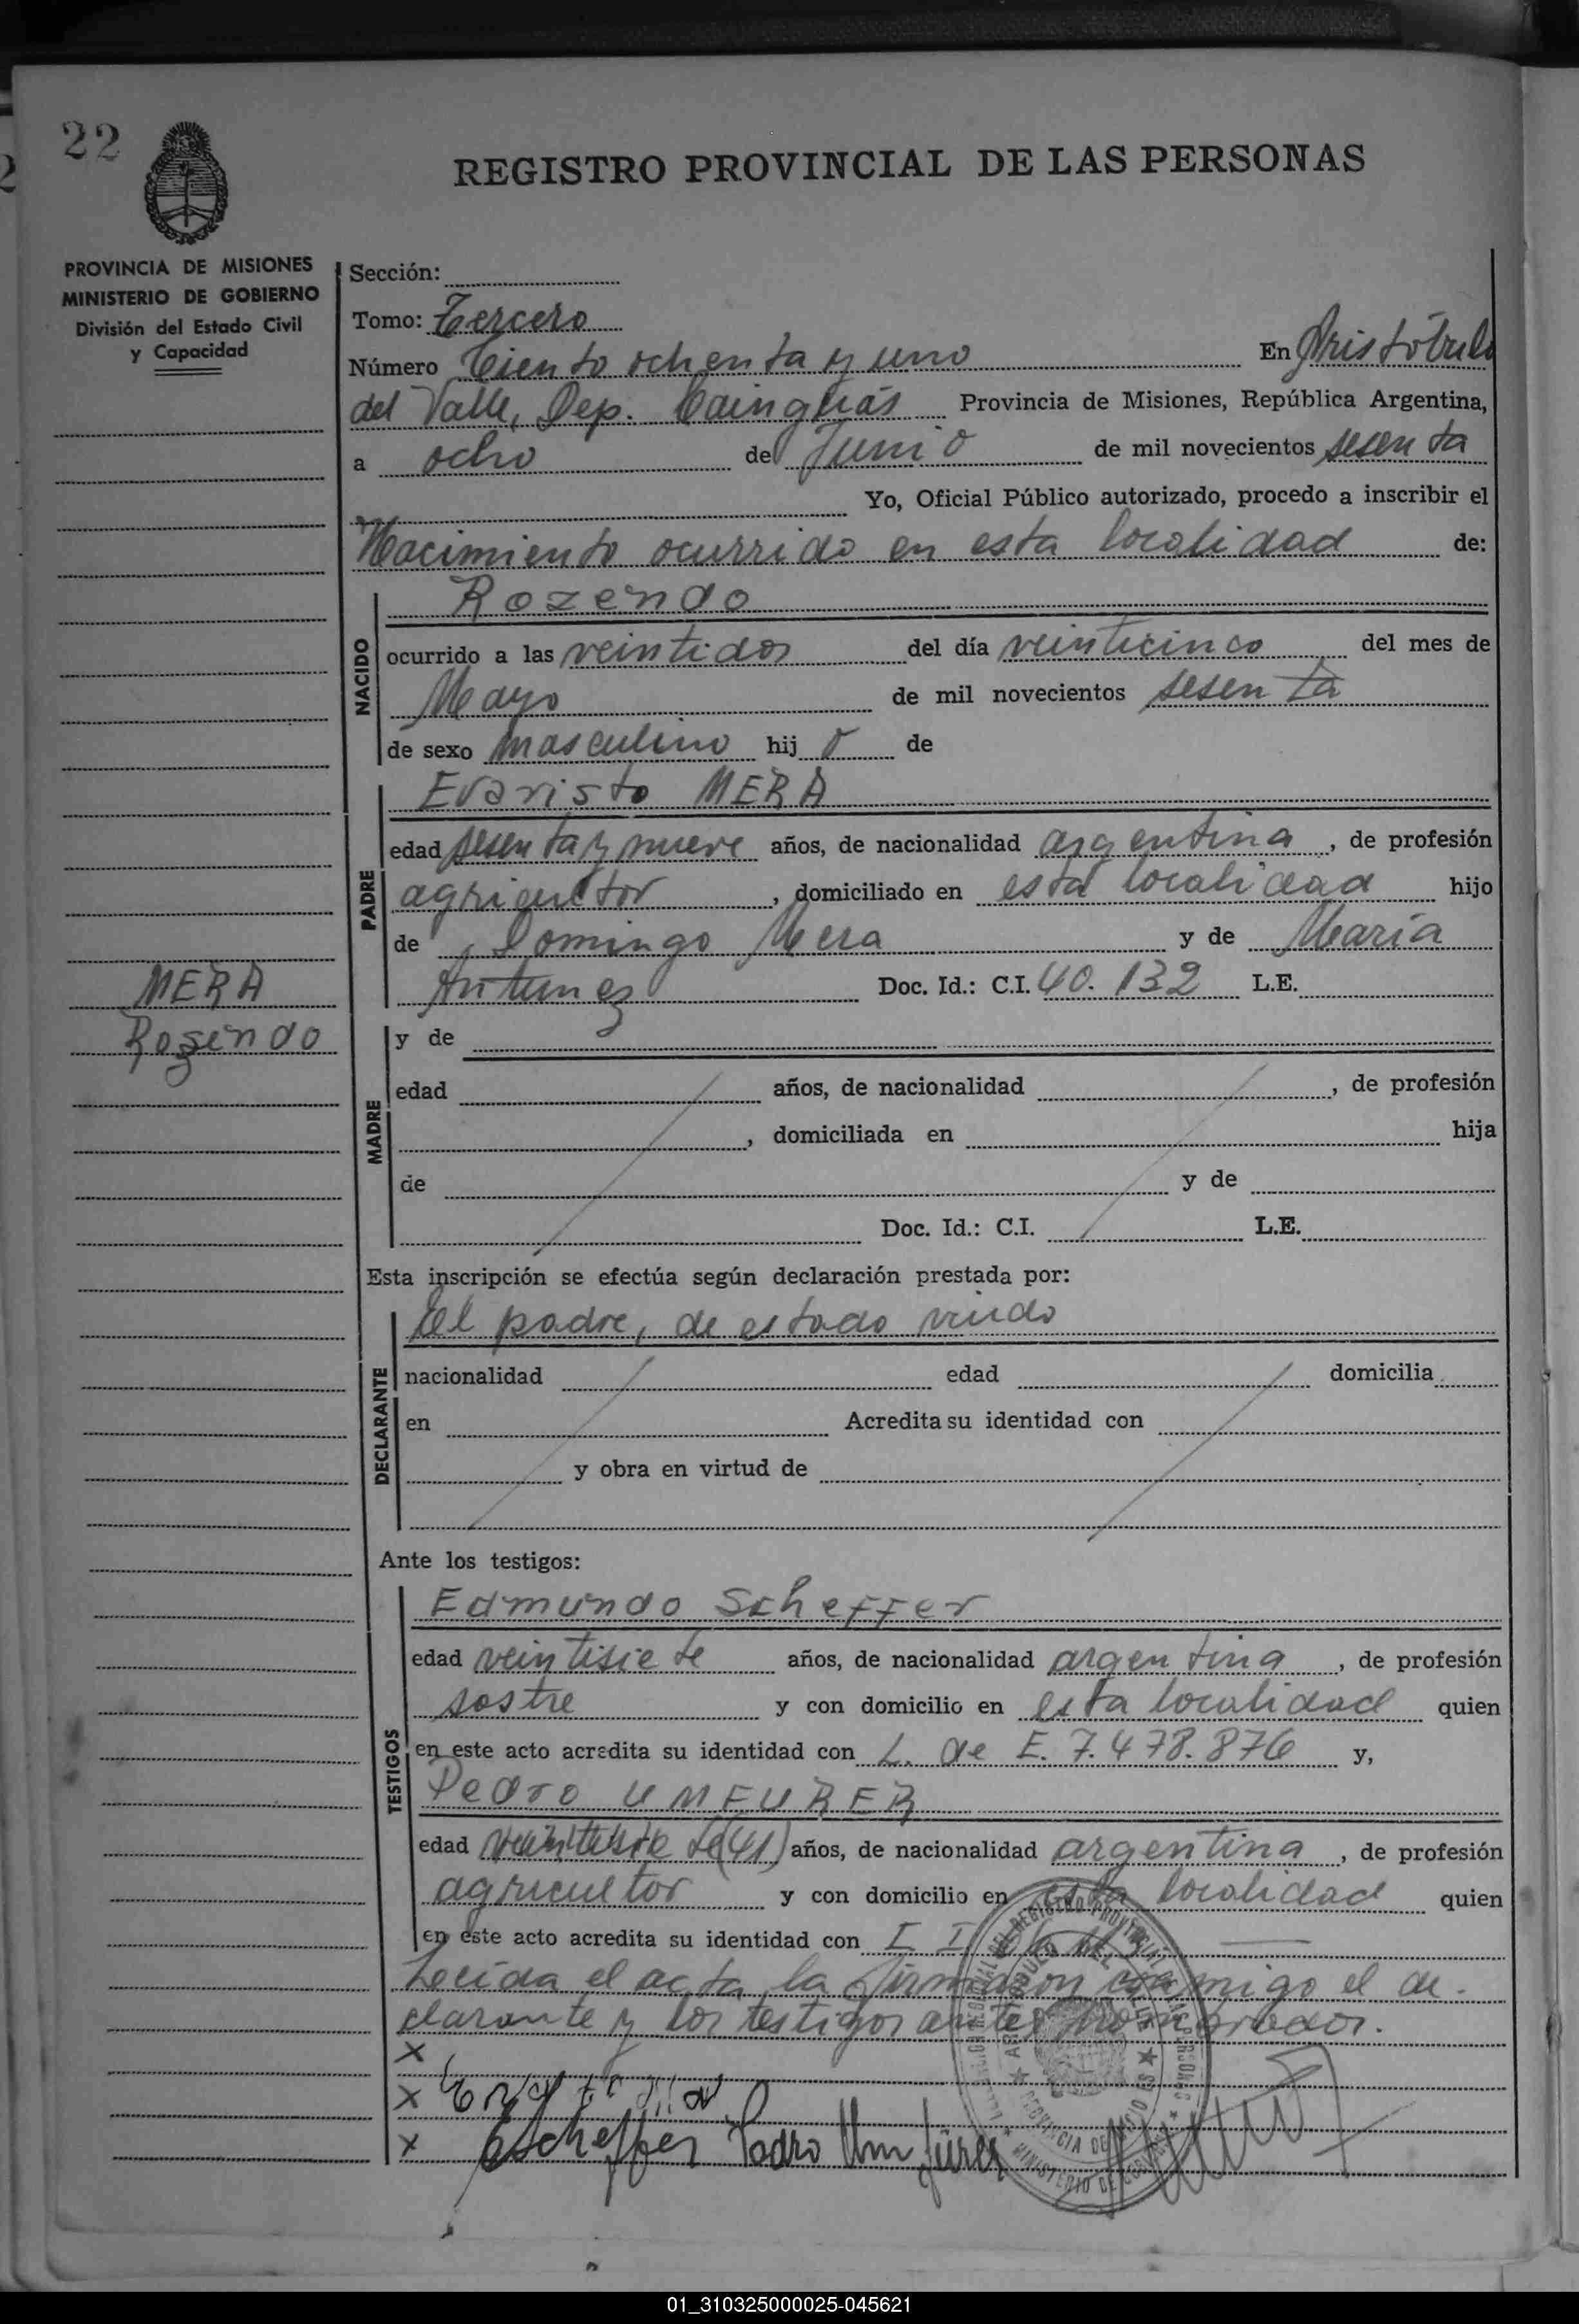 22
REGISTRO PROVINCIAL DE LAS PERSONAS
PROVINCIA DE MISIONES
MINISTERIO DE GOBIERNO
División del Estado Civil
y Capacidad
Sección:
Tomo: Tercero
Número Ciento ochenta y uno En Aristóbulo
del Valle, Dep. Cainguás Provincia de Misiones, República Argentina,
a ocho de Junio de mil novecientos sesenta
Yo, Oficial Público autorizado, procedo a inscribir el
Nacimiento ocurrido en esta localidad de:
Rozendo
NACIDO
ocurrido a las veintidos del día veinticinco del mes de
Mayo de mil novecientos sesenta
de sexo masculino hijo de
Evaristo MERA
PADRE
edad sesenta y nueve años, de nacionalidad argentina, de profesión
agricultor, domiciliado en esta localidad hijo
de Domingo Mera y de María
Antunez Doc. Id.: C.I. 40.132 L.E.
MERA
Rozendo
MADRE
y de
edad años, de nacionalidad , de profesión
, domiciliada en hija
de y de
Doc. Id.: C.I. L.E.
Esta inscripción se efectúa según declaración prestada por:
DECLARANTE
El padre, de estado viudo
nacionalidad edad domicilia
en Acredita su identidad con
y obra en virtud de
Ante los testigos:
TESTIGOS
Edmundo Scheffer
edad veintisiete años, de nacionalidad argentina, de profesión
sastre y con domicilio en esta localidad quien
en este acto acredita su identidad con L. de E. 7.478.876 y,
Pedro UMFURER
edad (41) años, de nacionalidad argentina, de profesión
agricultor y con domicilio en esta localidad quien
en este acto acredita su identidad con
Leída el acta, la firmaron conmigo el de-
clarante y los testigos antes nombrados.
x
x
x EScheffer Pedro Umfürer
01_310325000025-045621